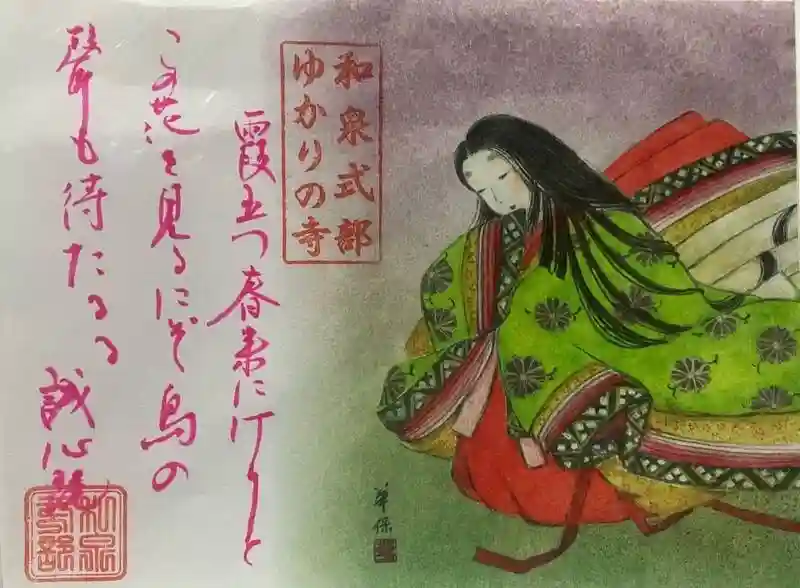 和泉式部
ゆかりの寺
霞立つ春来にけりと
この花を見るにぞ鳥の
聲も待たるる
誠心院
和泉
式部